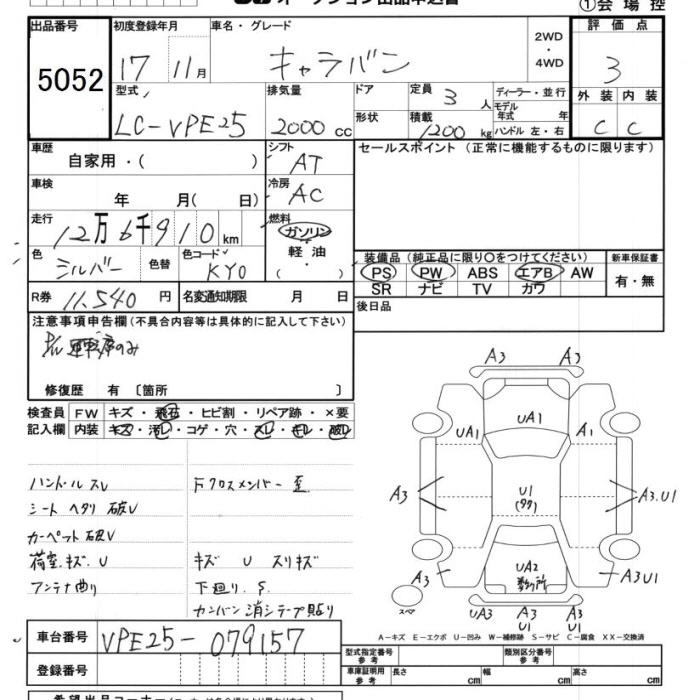 オークション出品申込書
①会場控
出品番号 初度登録年月 車名・グレード 2WD・4WD 評価点
5052 17 11月 キャラバン 3
型式 排気量 ドア 定員 3人 ディーラー・並行 外装 内装
モデル年式 年
LC-VPE25 2000cc 形状 積載 1200kg ハンドル 左・右 C C
車歴 シフト セールスポイント (正常に機能するものに限ります)
自家用・( ) AT
車検 冷房
年 月( 日) AC
走行 燃料
12万6千910km ガソリン
色 色替 色コード 軽油
シルバー KY0 ・( )
装備品 (純正品に限り○をつけてください) 新車保証書
PS PW ABS エアB AW 有・無
SR ナビ TV カワ
R券 11,540円 名変通知期限 月 日
後日品
注意事項申告欄(不具合内容等は具体的に記入して下さい)
P/W 運転席のみ
修復歴 有 〔箇所 〕
検査員 FW キズ・飛石・ヒビ割・リペア跡・×要
記入欄 内装 キズ・汚レ・コゲ・穴・スレ・キレ・破レ
ハンドルスレ Fクロスメンバー歪
シートヘタリ破レ
カーペット破レ
荷室キズU キズ U スリキズ
アンテナ曲り 下廻り.S.
カンバン消シテープ貼り
A3 A3
UA1
UA1 A1
A3 U1 A3.U1
(タワ)
UA2
A3 数ヶ所 A3U1
スペア
UA3 A3 A3
U1 U1
A-キズ E-エクボ U-凹み W-補修跡 S-サビ C-腐食 XX-交換済
車台番号 VPE25-079157
登録番号
型式指定番号 参考 類別区分番号 参考
車庫証明用 参考 長さ 幅 高さ
cm cm cm
希望出品コーナー